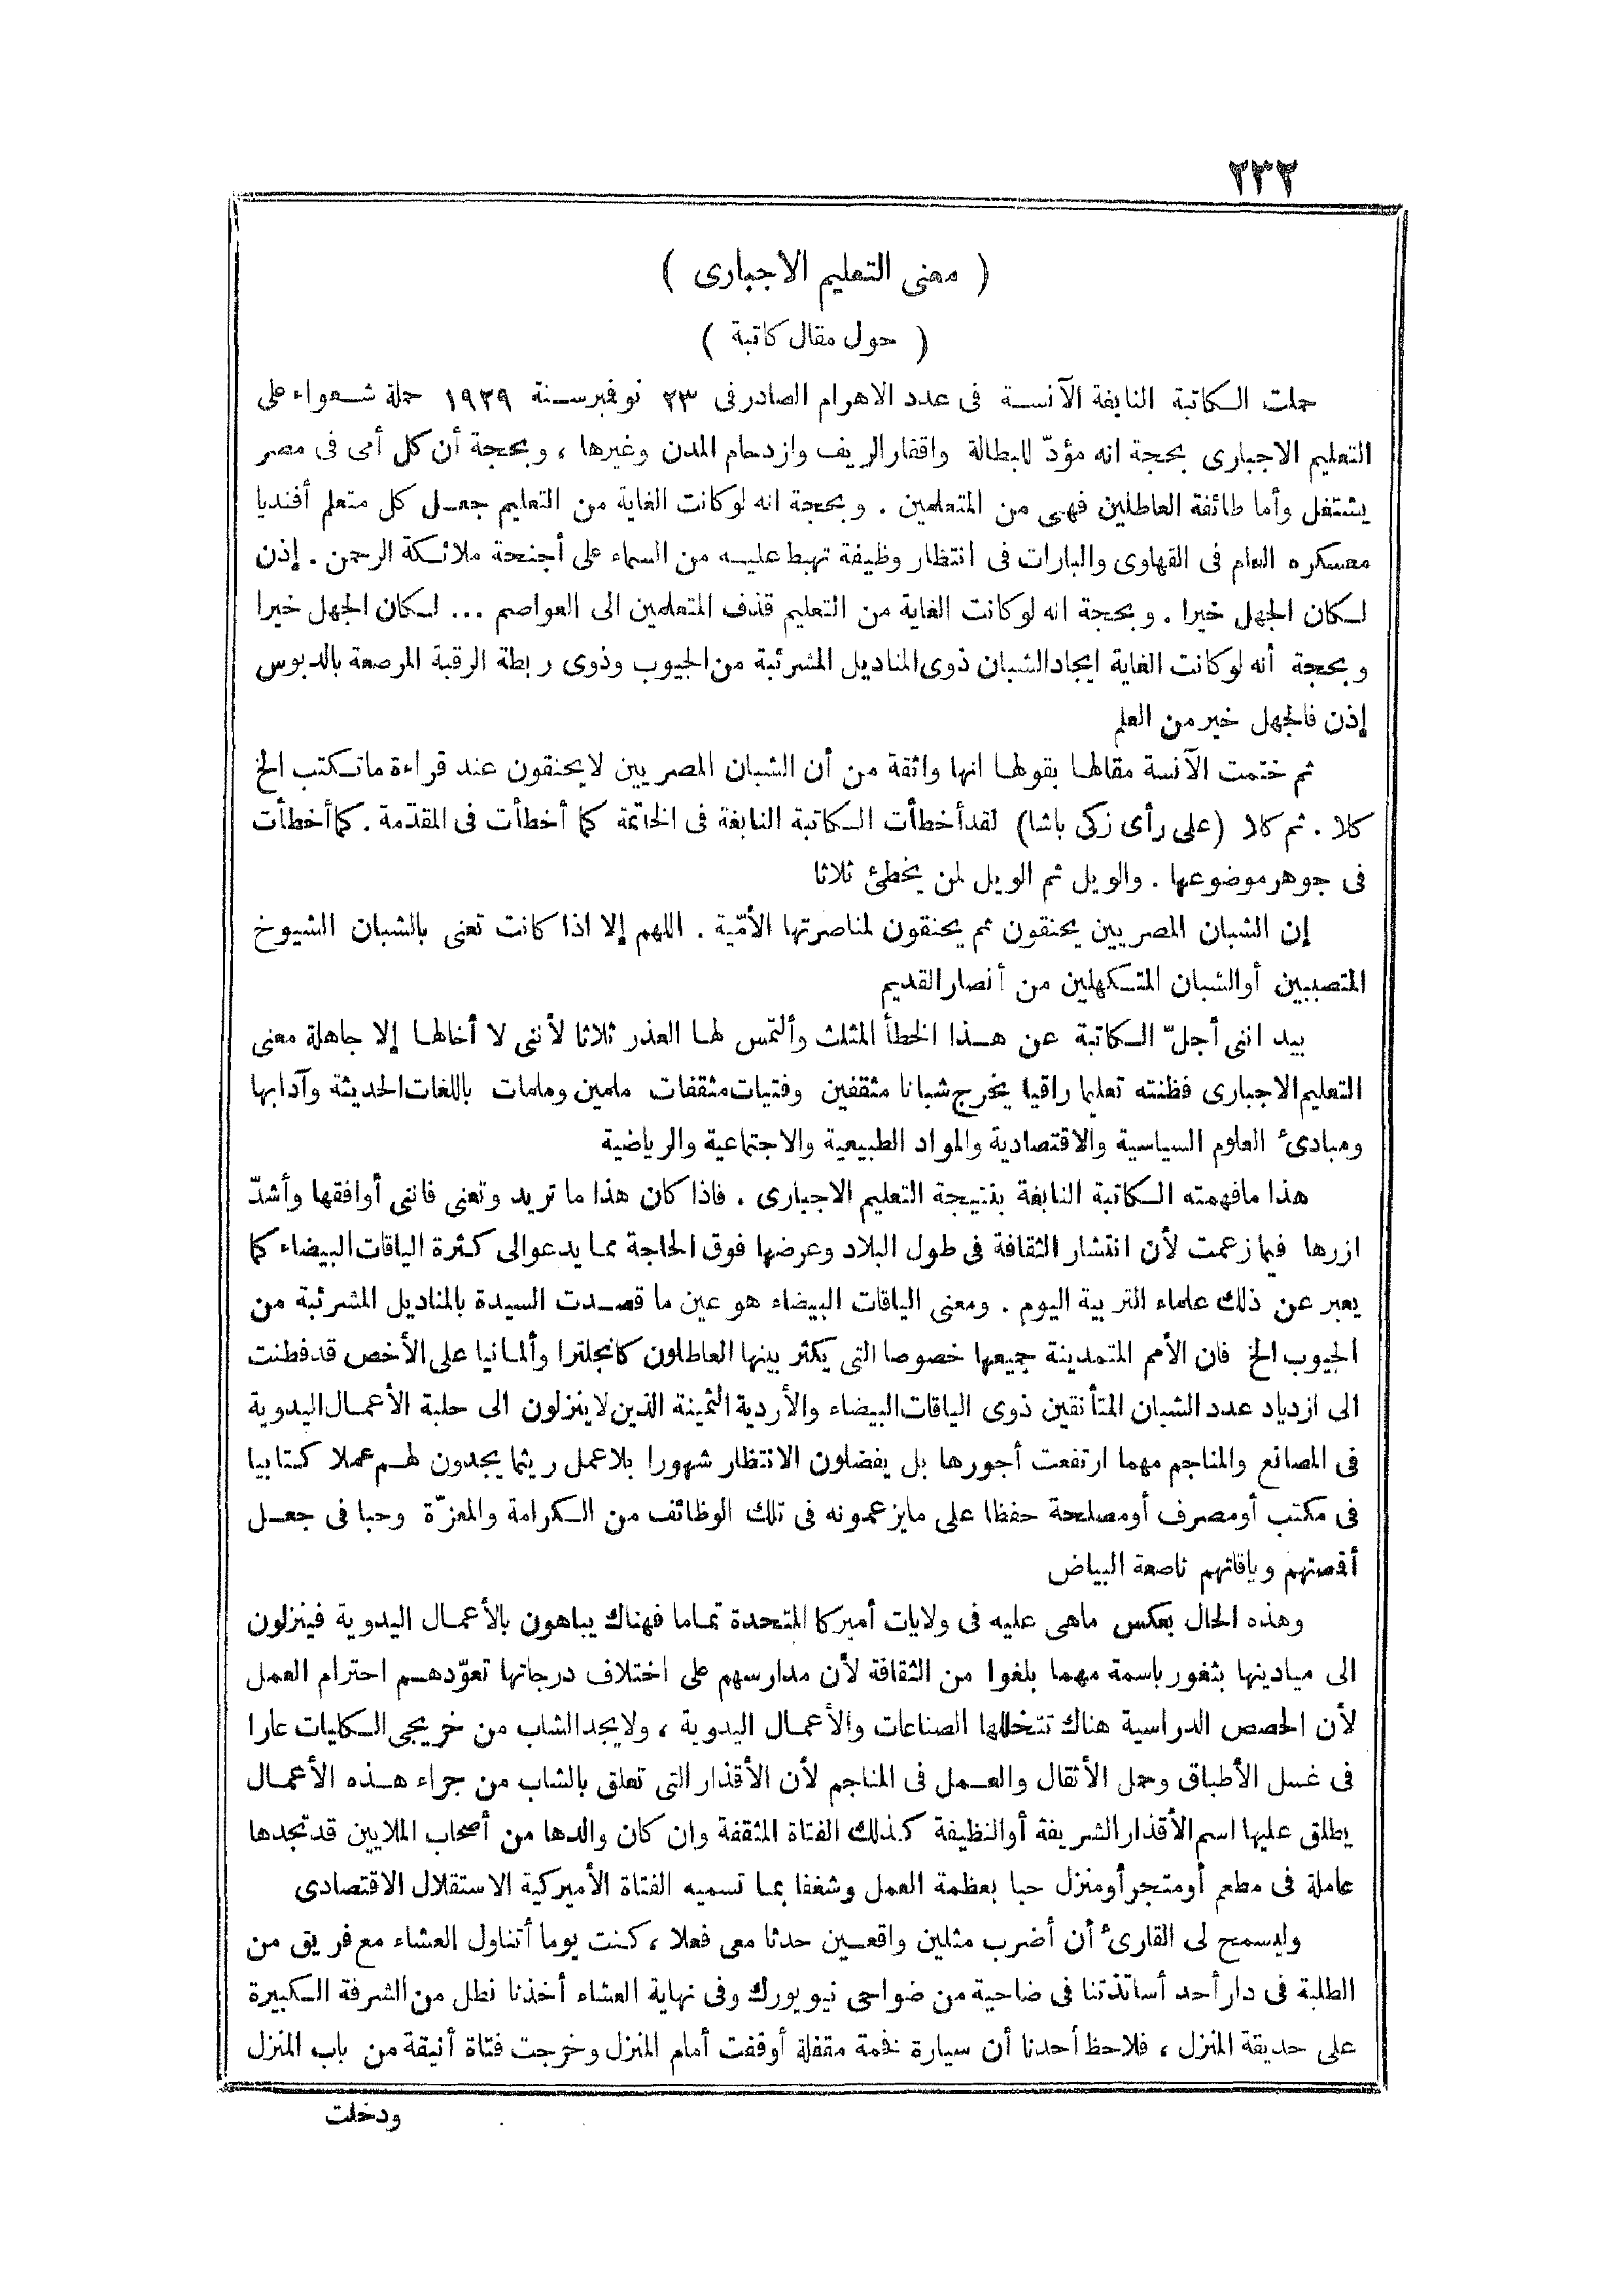 ٢٣٢
( معنى التعليم الاجبارى )
( حول مقال كاتبة )
حملت الكاتبة النابغة الآنسة فى عدد الاهرام الصادر فى ٢٣ نوفمبر سنة ١٩٢٩ حملة شعواء على
التعليم الاجبارى بحجة انه مؤدّ للبطالة واقفار الريف وازدحام المدن وغيرها ، وبحجة أن كل أمى فى مصر
يشتغل وأما طائفة العاطلين فهى من المتعلمين . وبحجة انه لو كانت الغاية من التعليم جعل كل متعلم أفنديا
معسكره العام فى القهاوى والبارات فى انتظار وظيفة تهبط عليه من السماء على أجنحة ملائكة الرحمن . إذن
لكان الجهل خيرا . وبحجة انه لو كانت الغاية من التعليم قذف المتعلمين الى العواصم ... لكان الجهل خيرا
وبحجة أنه لو كانت الغاية ايجاد الشبان ذوى المناديل المشرئبة من الجيوب وذوى ربطة الرقبة المرصعة بالدبوس
إذن فالجهل خير من العلم
ثم ختمت الآنسة مقالها بقولها انها واثقة من أن الشبان المصريين لا يحنقون عند قراءة ما تكتب الخ
كلا . ثم كلا (على رأى زكى باشا) لقد أخطأت الكاتبة النابغة فى الخاتمة كما أخطأت فى المقدّمة . كما أخطأت
فى جوهر موضوعها . والويل ثم الويل لمن يخطئ ثلاثا
إن الشبان المصريين يحنقون ثم يحنقون لمناصرتها الأمّية . اللهم إلا اذا كانت تعنى بالشبان الشيوخ
المتصببين أو الشبان المتكهلين من أنصار القديم
بيد اننى أجلّ الكاتبة عن هذا الخطأ المثلث وألتمس لها العذر ثلاثا لأننى لا أخالها إلا جاهلة معنى
التعليم الاجبارى فظنته تعليما راقيا يخرج شبانا مثقفين وفتيات مثقفات ملمين وملمات باللغات الحديثة وآدابها
ومبادئ العلوم السياسية والاقتصادية والمواد الطبيعية والاجتماعية والرياضية
هذا ما فهمته الكاتبة النابغة بنتيجة التعليم الاجبارى . فاذا كان هذا ما تريد وتعنى فاننى أوافقها وأشدّ
ازرها فيما زعمت لأن انتشار الثقافة فى طول البلاد وعرضها فوق الحاجة مما يدعو الى كثرة الياقات البيضاء كما
يعبر عن ذلك علماء التربية اليوم . ومعنى الياقات البيضاء هو عين ما قصدت السيدة بالمناديل المشرئبة من
الجيوب الخ فان الأمم المتمدينة جميعها خصوصا التى يكثر بينها العاطلون كانجلترا وألمانيا على الأخص قد فطنت
الى ازدياد عدد الشبان المتأنقين ذوى الياقات البيضاء والأردية الثمينة الذين لا ينزلون الى حلبة الأعمال اليدوية
فى المصانع والمناجم مهما ارتفعت أجورها بل يفضلون الانتظار شهورا بلا عمل ريثما يجدون لهم عملا كتابيا
فى مكتب أو مصرف أو مصلحة حفظا على ما يزعمونه فى تلك الوظائف من الكرامة والمعزّة وحبا فى جعل
أقمصتهم وياقاتهم ناصعة البياض
وهذه الحال بعكس ماهى عليه فى ولايات أميركا المتحدة تماما فهناك يباهون بالأعمال اليدوية فينزلون
الى ميادينها بثغور باسمة مهما بلغوا من الثقافة لأن مدارسهم على اختلاف درجاتها تعوّدهم احترام العمل
لأن الحصص الدراسية هناك تتخللها الصناعات والأعمال اليدوية ، ولا يجد الشاب من خريجى الكليات عارا
فى غسل الأطباق وحمل الأثقال والعمل فى المناجم لأن الأقذار التى تعلق بالشاب من جراء هذه الأعمال
يطلق عليها اسم الأقذار الشريفة أو النظيفة كذلك الفتاة المثقفة وان كان والدها من أصحاب الملايين قد تجدها
عاملة فى مطعم أو متجر أو منزل حبا بعظمة العمل وشغفا بما تسميه الفتاة الأميركية الاستقلال الاقتصادى
وليسمح لى القارئ أن أضرب مثلين واقعين حدثا معى فعلا ، كنت يوما أتناول العشاء مع فريق من
الطلبة فى دار أحد أساتذتنا فى ضاحية من ضواحى نيويورك وفى نهاية العشاء أخذنا نطل من الشرفة الكبيرة
على حديقة المنزل ، فلاحظ أحدنا أن سيارة فخمة مقفلة أوقفت أمام المنزل وخرجت فتاة أنيقة من باب المنزل
ودخلت